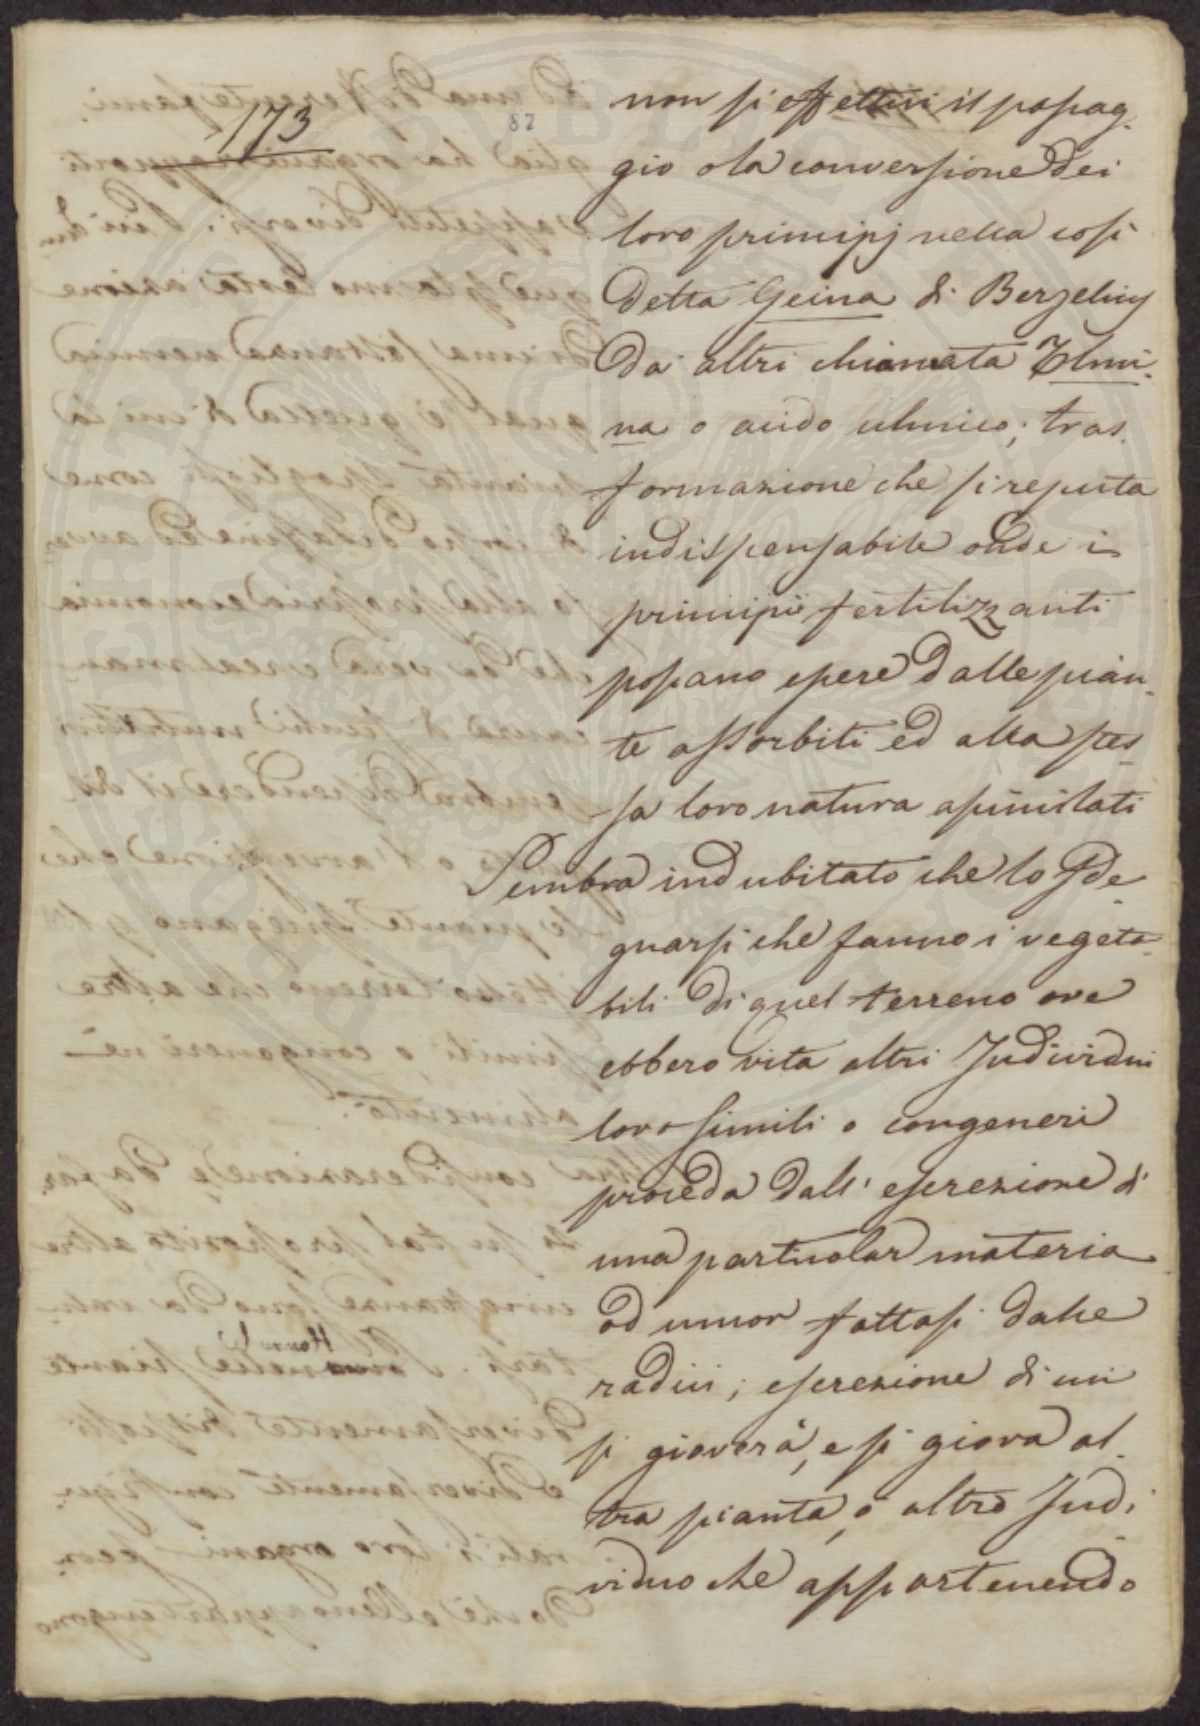 173
87
non si effettui il passag-
gio o la conversione dei
loro principj nella così
detta Geina di Berzelius
da altri chiamata Ulmi-
na o acido ulmico; tras-
formazione che si reputa
indispensabile onde i
principii fertilizzanti
possano essere dalle pian-
te assorbiti ed alla stes-
sa loro natura assimilati
Sembra indubitato che lo sde-
gnarsi che fanno i vegeta-
bili di quel terreno ove
ebbero vita altri Individui
loro simili o congeneri
proceda dall' escrezione di
una particolar materia
od umor fattasi dalle
radici; escrezione di cui
si gioverà, e si giova al-
tra pianta, o altro Indi-
viduo che appartenendo